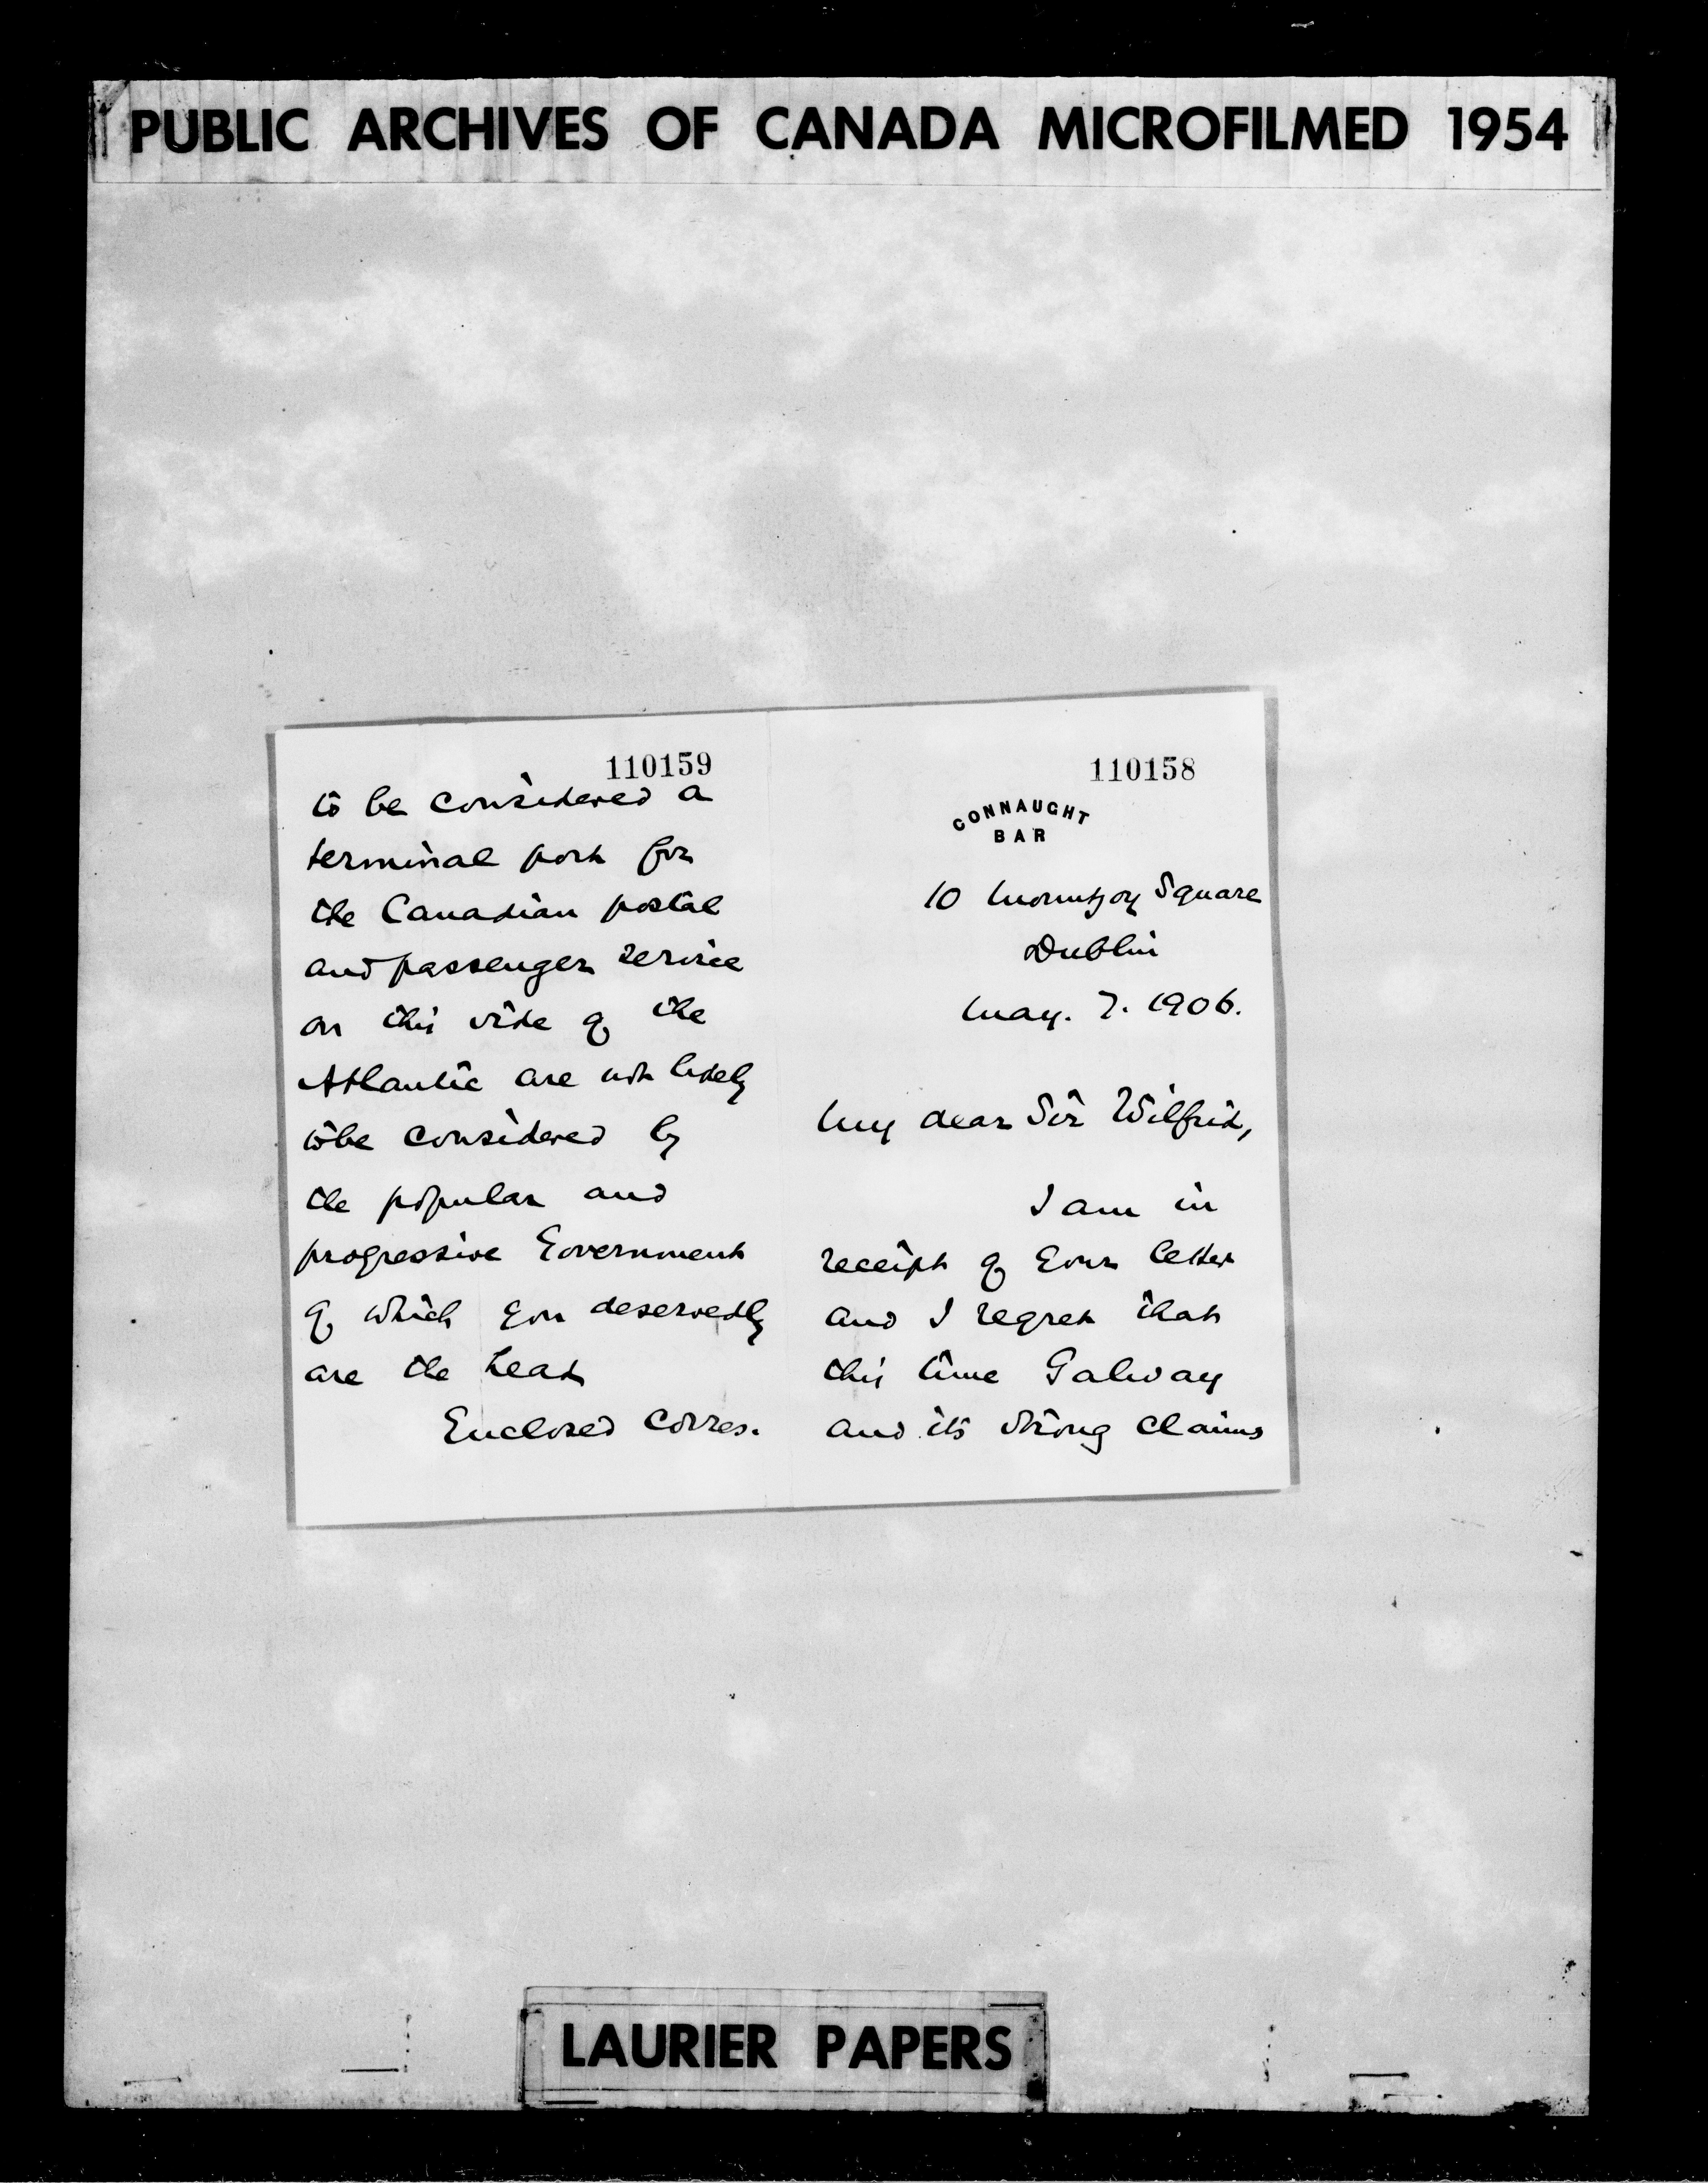 PUBLIC ARCHIVES OF CANADA MICROFILMED 1954
110158
CONNAUGHT
BAR
10 Mountjoy Square
Dublin
May. 7. 1906.
My dear Sir Wilfrid,
I am in
receipt of your letter
and I regret that
this time Galway
and its strong claims
110159
to be considered a
terminal port for
the Canadian postal
and passenger service
on this side of the
Atlantic are not likely
to be considered by
the popular and
progressive Government
of which you deservedly
are the head
Enclosed corres.
LAURIER PAPERS